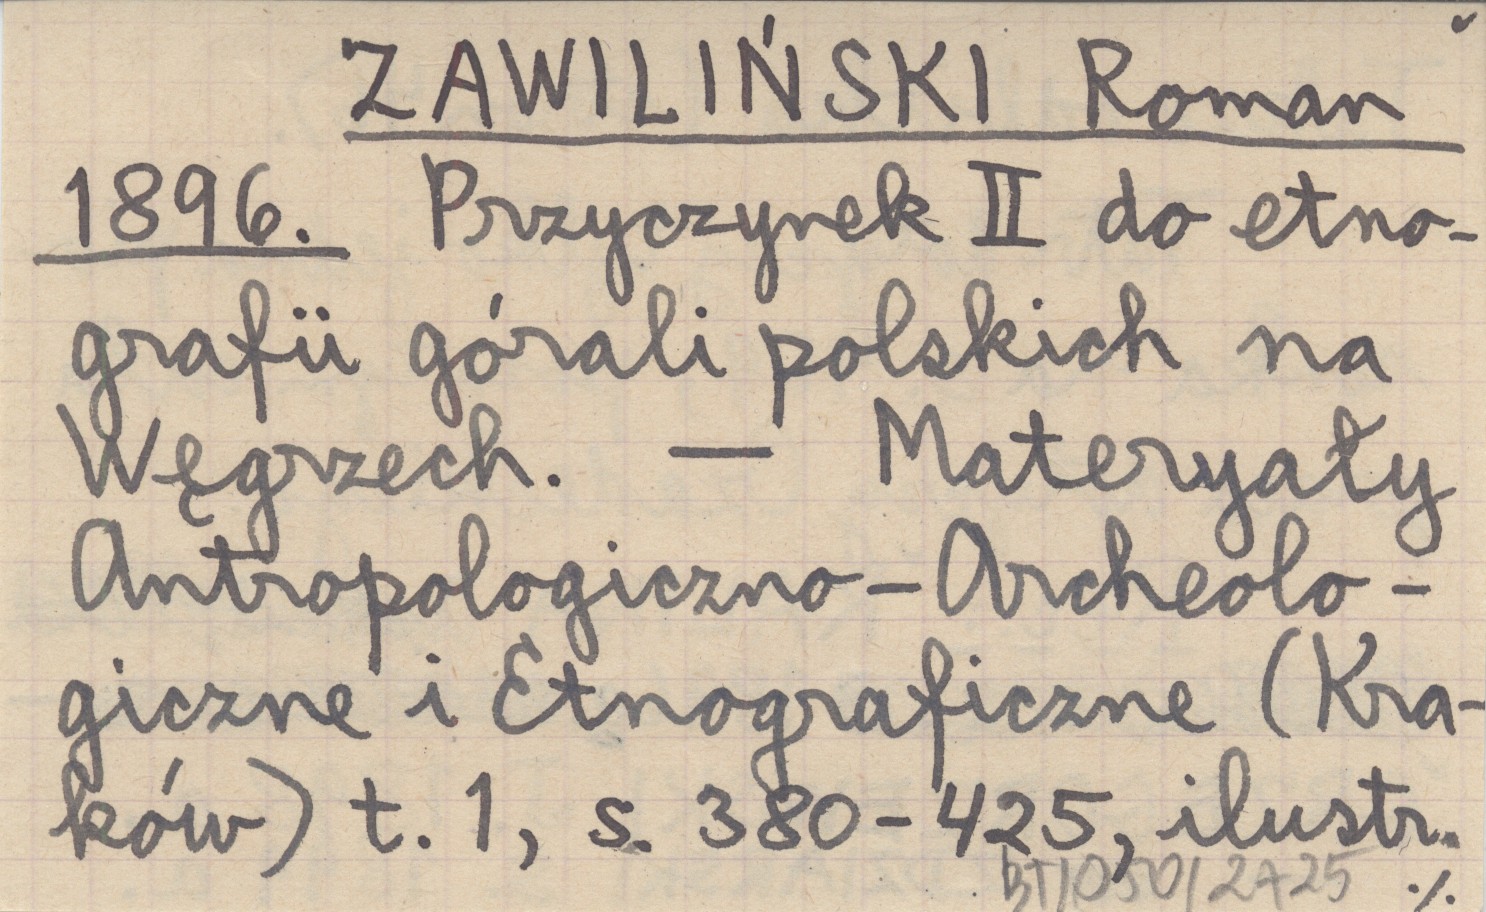 ZAWILIŃSKI Roman
1896. Przyczynek II do etno-
grafii górali polskich na
Węgrzech. — Materyały
Antropologiczno-Archeolo-
giczne i Etnograficzne (Kra-
ków) t. 1, s. 380-425, ilustr.
BT/050/2725
./.